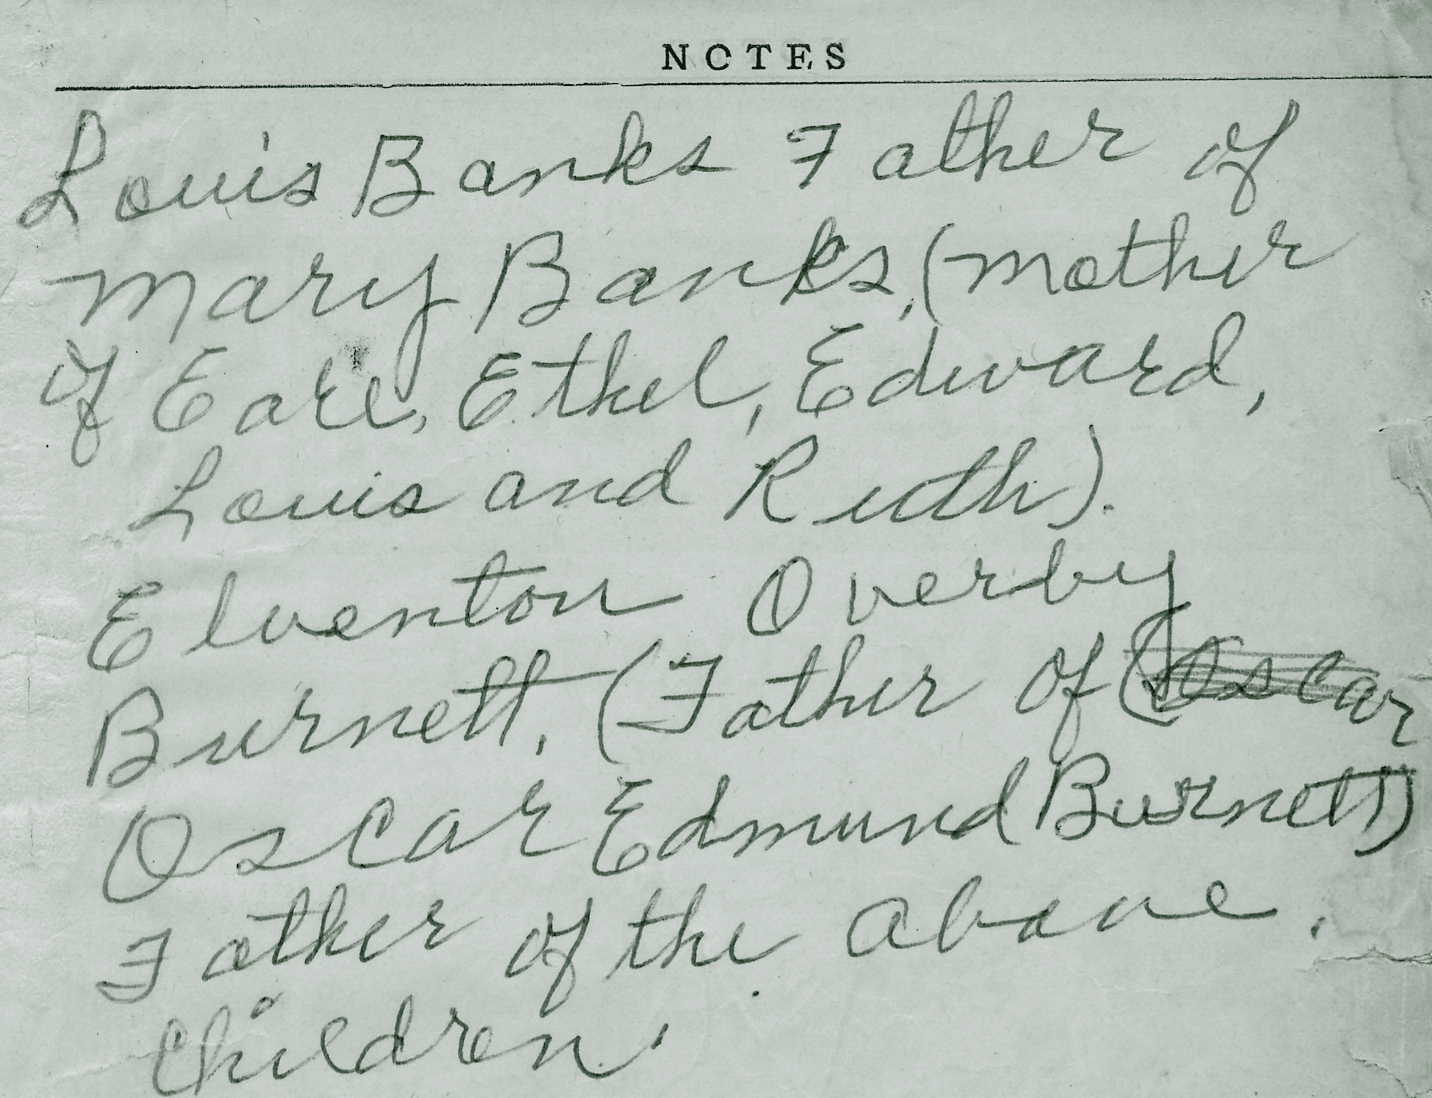 NOTES
Louis Banks Father of
Mary Banks, (mother
of Earl, Ethel, Edward,
Louis and Ruth).
Elventon Overby
Burnett, (Father of (Oscar
Oscar Edmund Burnett)
Father of the above.
Children.